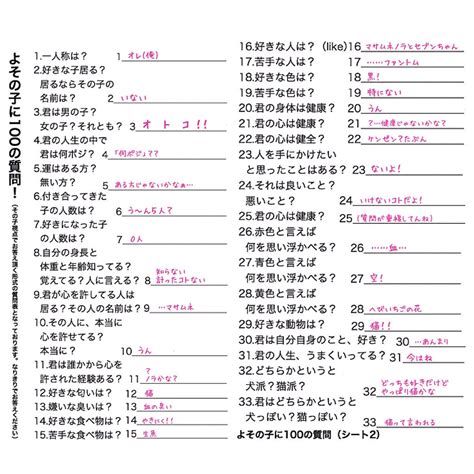 よその子に100の質問!
(その子視点でお答え頂く形式の質問表となっております。なりきりでお答えください)
1.一人称は? 1 オレ(俺)
2.好きな子居る?
居るならその子の
名前は? 2 いない
3.君は男の子?
女の子?それとも? 3 オトコ!!
4.君の人生の中で
君は何ポジ? 4 「何ポジ」??
5.運はある方?
無い方? 5 ある方じゃないかなぁ…
6.付き合ってきた
子の人数は? 6 う〜ん5人?
7.好きになった子
の人数は? 7 0人
8.自分の身長と
体重と年齢知ってる?
覚えてる?人に言える? 8 知らない 計ったコトない
9.君が心を許してる人は
居る?その人の名前は? 9 …マサムネ
10.その人に、本当に
心を許せてる?
本当に? 10 うん
11.君は誰かから心を
許された経験ある? 11 ? ノラかな?
12.好きな匂いは? 12 猫
13.嫌いな臭いは? 13 血の臭い
14.好きな食べ物は? 14 やきにく!!
15.苦手な食べ物は? 15 生魚
16.好きな人は?(like) 16 マサムネ/ラとセブンちゃん
17.苦手な人は? 17 ……ファントム
18.好きな色は? 18 黒!
19.苦手な色は? 19 特にない
20.君の身体は健康? 20 うん
21.君の心は健康? 21 ?…健康じゃないかな?
22.君の心は健全? 22 ケンゼン?たぶん
23.人を手にかけたい
と思ったことはある? 23 ないよ!
24.それは良いこと?
悪いこと? 24 いけないコトだよ!
25.君の心は健康? 25 (質問が重複してんね)
26.赤色と言えば
何を思い浮かべる? 26 …血…
27.青色と言えば
何を思い浮かべる? 27 空!
28.黄色と言えば
何を思い浮かべる? 28 へびいちごの花
29.好きな動物は? 29 猫!!
30.君は自分自身のこと、好き? 30 …あんまり
31.君の人生、うまくいってる? 31 今はね
32.どちらかというと
犬派?猫派? 32 どっちも好きだけど やっぱり猫かな
33.君はどちらかというと
犬っぽい?猫っぽい? 33 猫って言われる
よその子に100の質問(シート2)